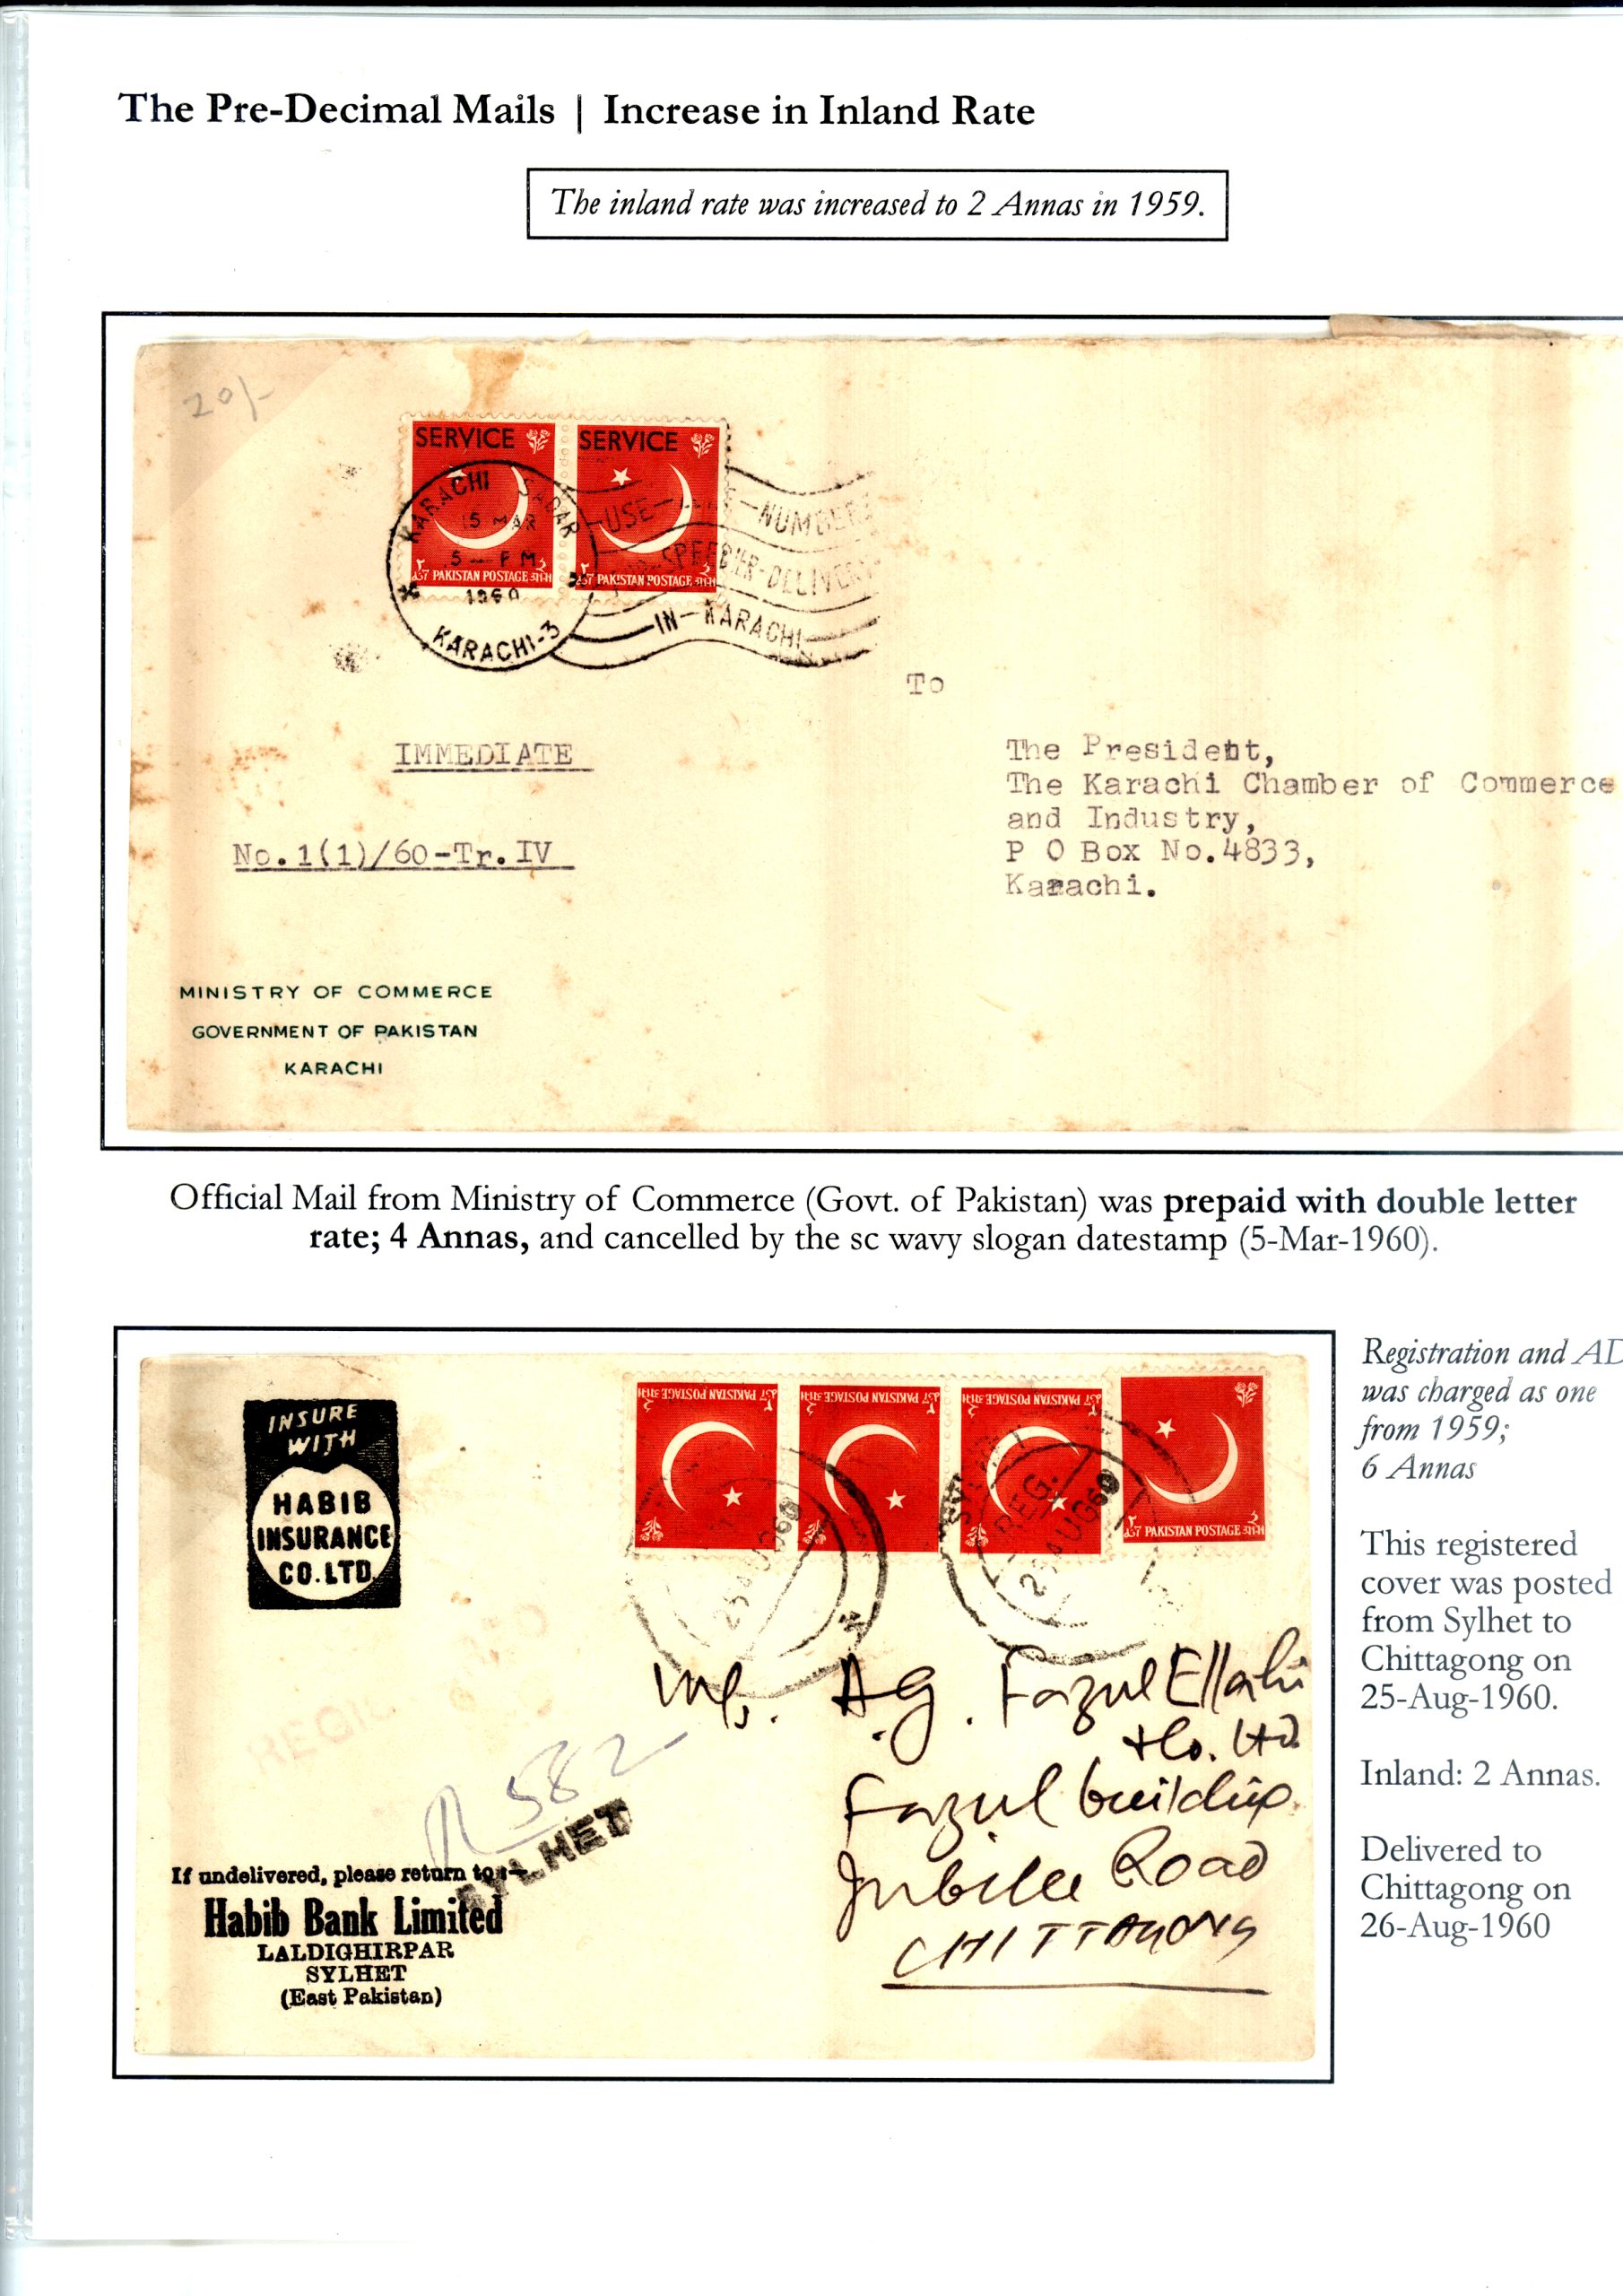 The Pre-Decimal Mails | Increase in Inland Rate
The inland rate was increased to 2 Annas in 1959.
20/-
SERVICE SERVICE
PAKISTAN POSTAGE PAKISTAN POSTAGE
KARACHI SADAR
15 MAR
5 - PM
1960
KARACHI-3
USE - NUMBERS
SPEEDIER-DELIVERY
IN-KARACHI
To
IMMEDIATE
No.1(1)/60-Tr.IV
The President,
The Karachi Chamber of Commerce
and Industry,
P O Box No.4833,
Karachi.
MINISTRY OF COMMERCE
GOVERNMENT OF PAKISTAN
KARACHI
Official Mail from Ministry of Commerce (Govt. of Pakistan) was prepaid with double letter
rate; 4 Annas, and cancelled by the sc wavy slogan datestamp (5-Mar-1960).
INSURE
WITH
HABIB
INSURANCE
CO. LTD.
PAKISTAN POSTAGE PAKISTAN POSTAGE PAKISTAN POSTAGE
PAKISTAN POSTAGE
REG.
25 AUG 60
M/s. A.G. Fazul Ellahi
& Co. Ltd.
Fazul building
Jubilee Road
CHITTAGONG
R 582
SYLHET
If undelivered, please return to:-
Habib Bank Limited
LALDIGHIRPAR
SYLHET
(East Pakistan)
Registration and AD
was charged as one
from 1959;
6 Annas
This registered
cover was posted
from Sylhet to
Chittagong on
25-Aug-1960.
Inland: 2 Annas.
Delivered to
Chittagong on
26-Aug-1960